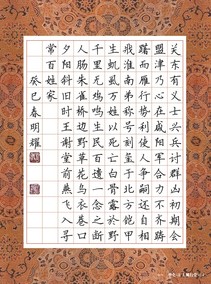 关东有义士兴兵讨群凶初期会
盟津乃心在咸阳军合力不齐踌
躇而雁行势利使人争嗣还自相
戕淮南弟称号刻玺于北方铠甲
生虮虱万姓以死亡白骨露於野
千里无鸡鸣生民百遗一念之断
人肠朱雀桥边野草花乌衣巷口
夕阳斜旧时王谢堂前燕飞入寻
常百姓家
癸巳春明耀